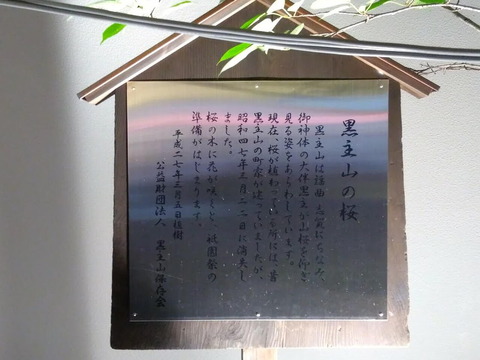 黒主山の桜
黒主山は謡曲志賀にちなみ、
御神体の大伴黒主が山桜を仰ぎ
見る姿をあらわしています。
現在、桜が植わっている所には、昔
黒主山の町家が建っていましたが、
昭和四七年三月二二日に消失し
ました。
桜の木に花が咲くと、祇園祭の
準備がはじまります。
平成二七年三月五日植樹
公益財団法人 黒主山保存会